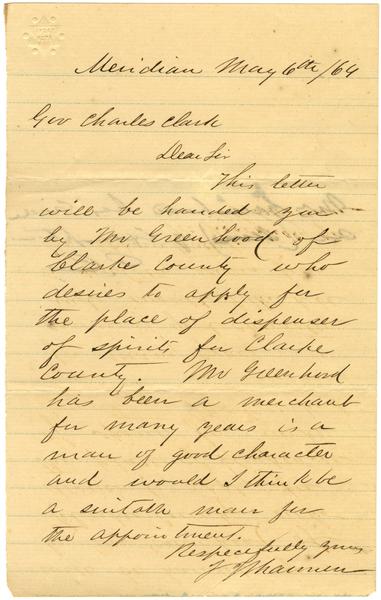 Meridian May 6th/64
Gov Charles Clark
Dear Sir
This letter
will be handed you
by Mr Greenhood of
Clarke County who
desires to apply for
the place of dispenser
of spirits for Clarke
County. Mr Greenhood
has been a merchant
for many years is a
man of good character
and would I think be
a suitable man for
the appointment.
Respectfully yours